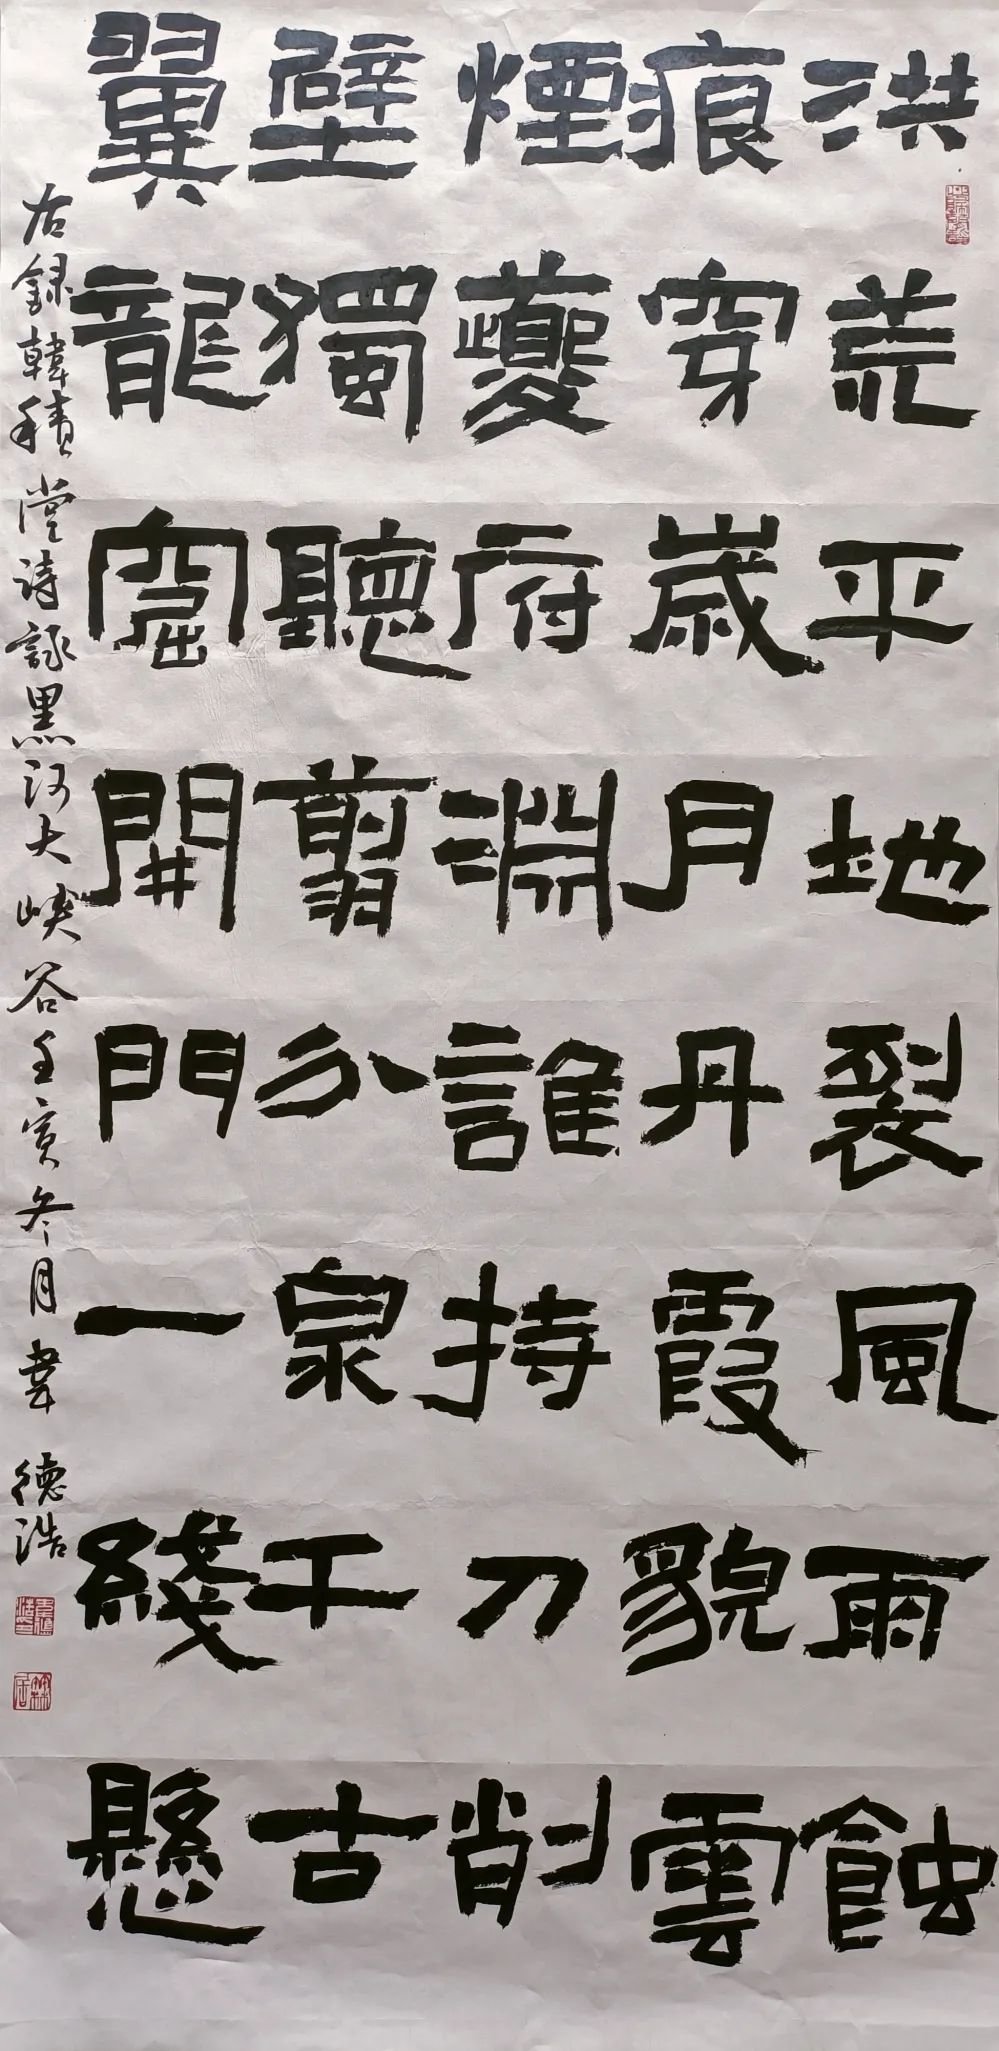 洪荒平地裂風雨蝕
痕穿歲月丹霞貌雲
煙夔府淵誰持刀削
壁獨聽翦分泉千古
翼龍窟開門一綫懸
右錄韓積堂詩詠黑河大峽谷壬寅冬月韋德浩